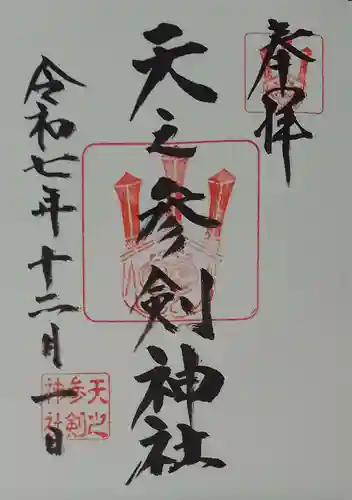 奉拝
天之参剣神社
令和七年十二月一日
天之
参剣
神社